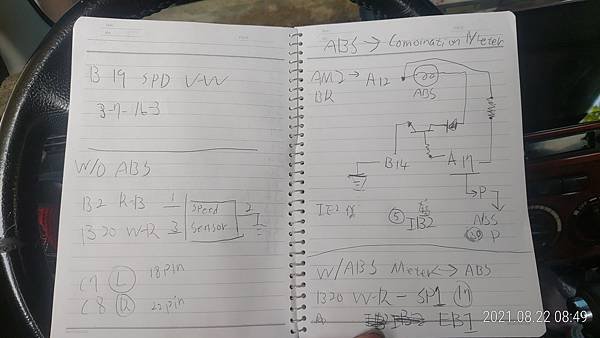 B 19 SPD V-W
3-7-16-3
W/O ABS
B2 R-B 1
B20 W-R 3
Speed Sensor
2
C7 L 18 pin
C8 R 22 pin
ABS → Combination Meter
AM2 → A12
BR
ABS
B14 A17
→P
IE2
5
IB2
ABS
P
W/ABS Meter ↔ ABS
B20 W-R - SP1
IB1
2021.08.22 08:49